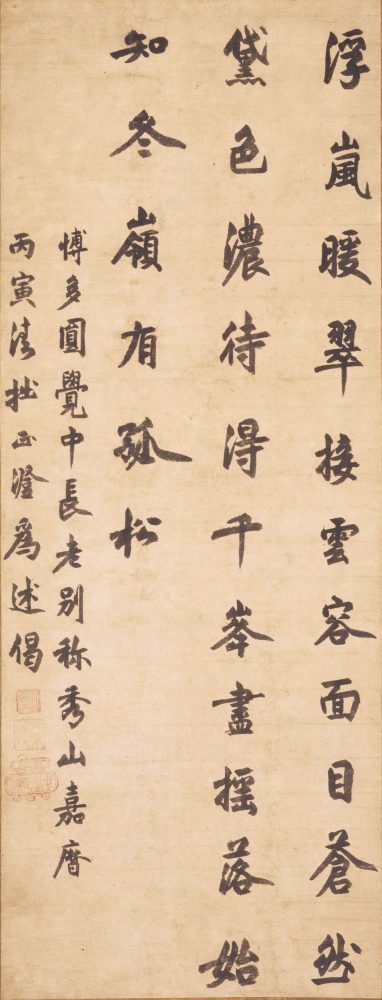 浮嵐暖翠接雲容面目蒼然
黛色濃待得千峯盡揺落始
知冬嶺有孤松
博多圓覺中長老別称秀山嘉暦
丙寅清拙正澄爲述偈